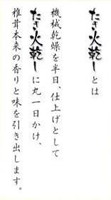 たき火乾しとは
機械乾燥を半日、仕上げとして
たき火乾しに丸一日かけ、
椎茸本来の香りと味を引き出します。